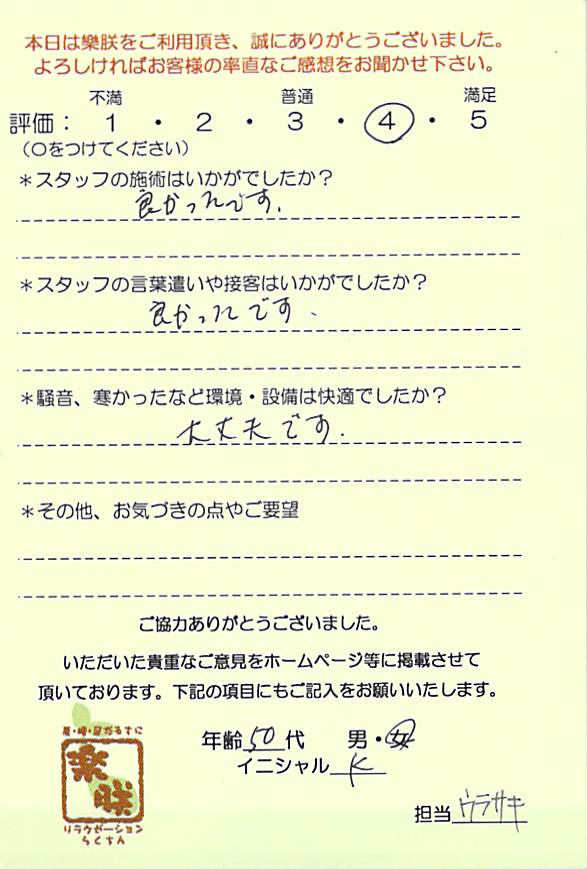 本日は樂朕をご利用頂き、誠にありがとうございました。
よろしければお客様の率直なご感想をお聞かせ下さい。
不満 普通 満足
評価： 1 ・ 2 ・ 3 ・ 4 ・ 5
（○をつけてください）
＊スタッフの施術はいかがでしたか？
良かったです.
＊スタッフの言葉遣いや接客はいかがでしたか？
良かったです.
＊騒音、寒かったなど環境・設備は快適でしたか？
大丈夫です.
＊その他、お気づきの点やご要望
ご協力ありがとうございました。
いただいた貴重なご意見をホームページ等に掲載させて
頂いております。下記の項目にもご記入をお願いいたします。
年齢 50 代 男・女
イニシャル K
担当 ウラサキ
樂
朕
リラクゼーション
らくちん